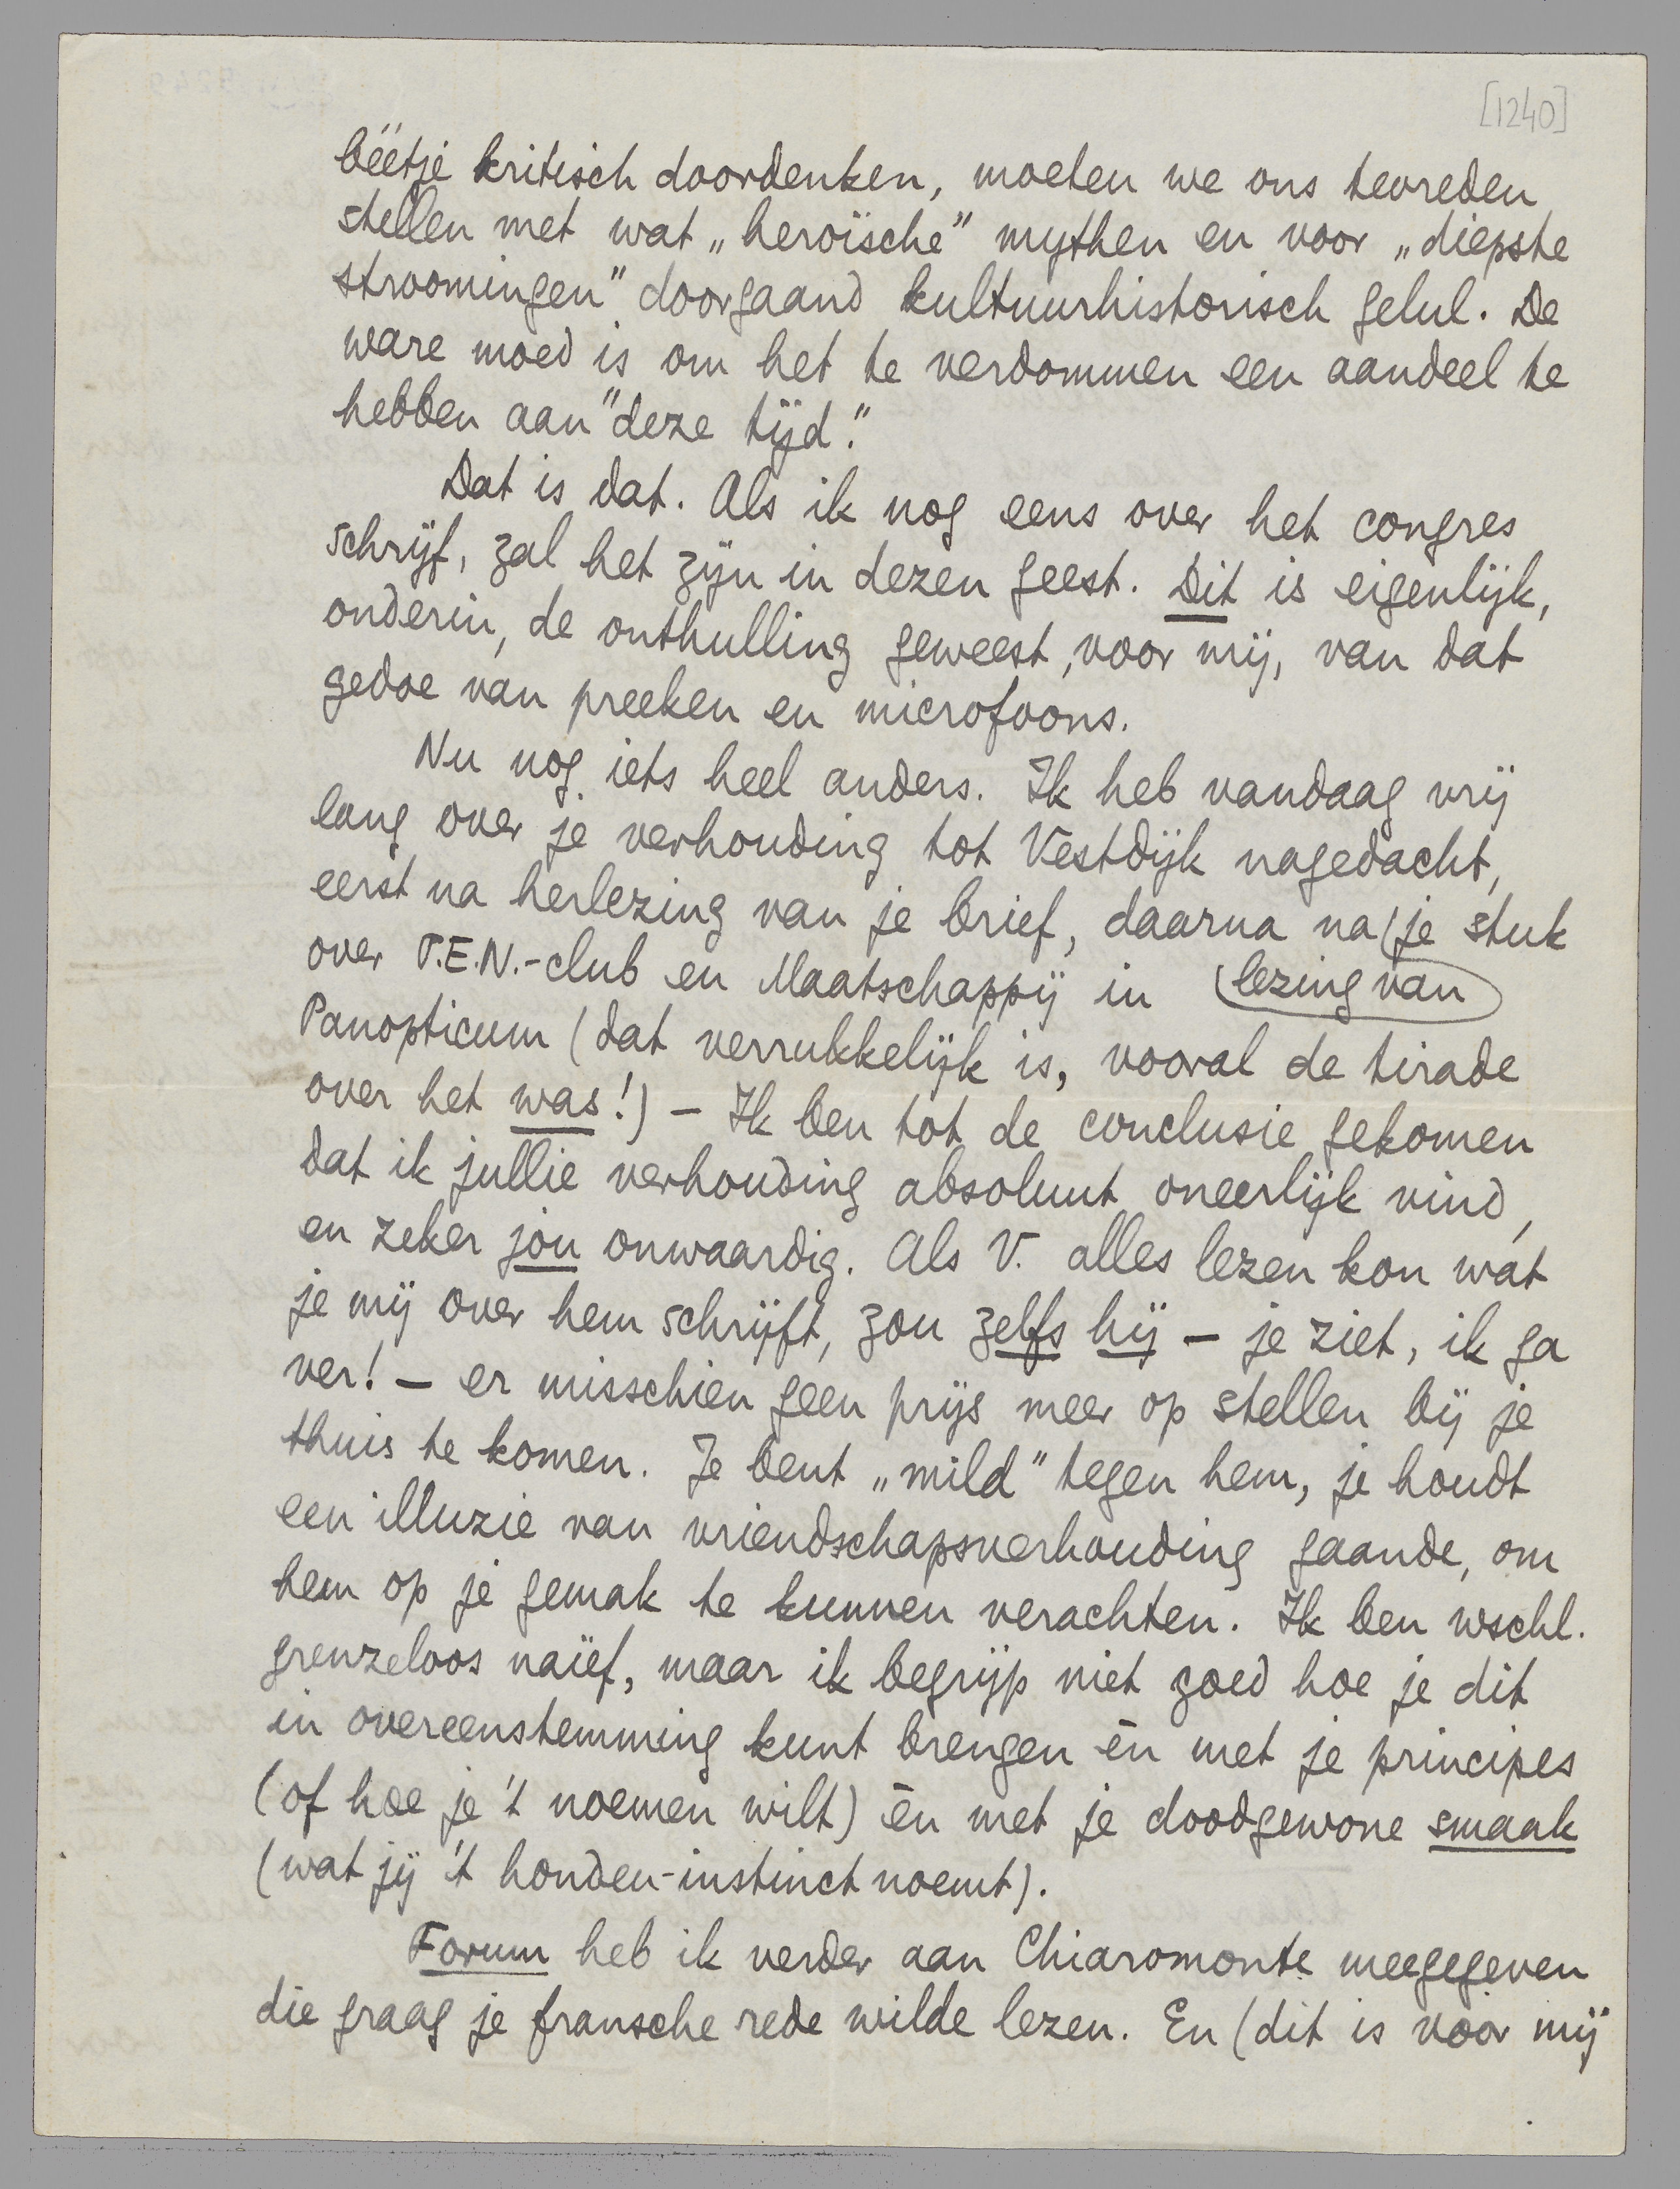 [1240]
bëëtje kritisch doordenken, moeten we ons tevreden
stellen met wat „heroïsche” mythen en voor „diepste
stroomingen” doorgaand kultuurhistorisch gelul. De
ware moed is om het te verdommen een aandeel te
hebben aan "deze tijd."
Dat is dat. Als ik nog eens over het congres
schrijf, zal het zijn in dezen geest. Dit is eigenlijk,
onderin, de onthulling geweest, voor mij, van dat
gedoe van preeken en microfoons.
Nu nog iets heel anders. Ik heb vandaag vrij
lang over je verhouding tot Vestdijk nagedacht,
eerst na herlezing van je brief, daarna na je stuk
over P.E.N.-club en Maatschappij in lezing van
Panopticum (dat verrukkelijk is, vooral de tirade
over het was!) – Ik ben tot de conclusie gekomen
dat ik jullie verhouding absoluut oneerlijk vind,
en zeker jou onwaardig. Als V. alles lezen kon wat
je mij over hem schrijft, zou zelfs hij – je ziet, ik ga
ver! – er misschien geen prijs meer op stellen bij je
thuis te komen. Je bent „mild” tegen hem, je houdt
een illuzie van vriendschapsverhouding gaande, om
hem op je gemak te kunnen verachten. Ik ben wschl.
grenzeloos naïef, maar ik begrijp niet goed hoe je dit
in overeenstemming kunt brengen èn met je principes
(of hoe je 't noemen wilt) èn met je doodgewone smaak
(wat jij 't honden-instinct noemt).
Forum heb ik verder aan Chiaromonte meegegeven
die graag je fransche rede wilde lezen. En (dit is voor mij